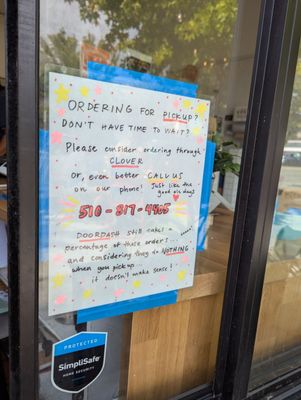 ORDERING FOR PICKUP?
DON'T HAVE TIME TO WAIT?
Please consider ordering through
CLOVER
or, even better CALL US
on our phone! Just like the
good ole days
510-817-4465
DOORDASH still takes a
percentage of those orders...
and considering they do NOTHING
when you pick up.....
it doesn't make sense!
PROTECTED
SimpliSafe
HOME SECURITY